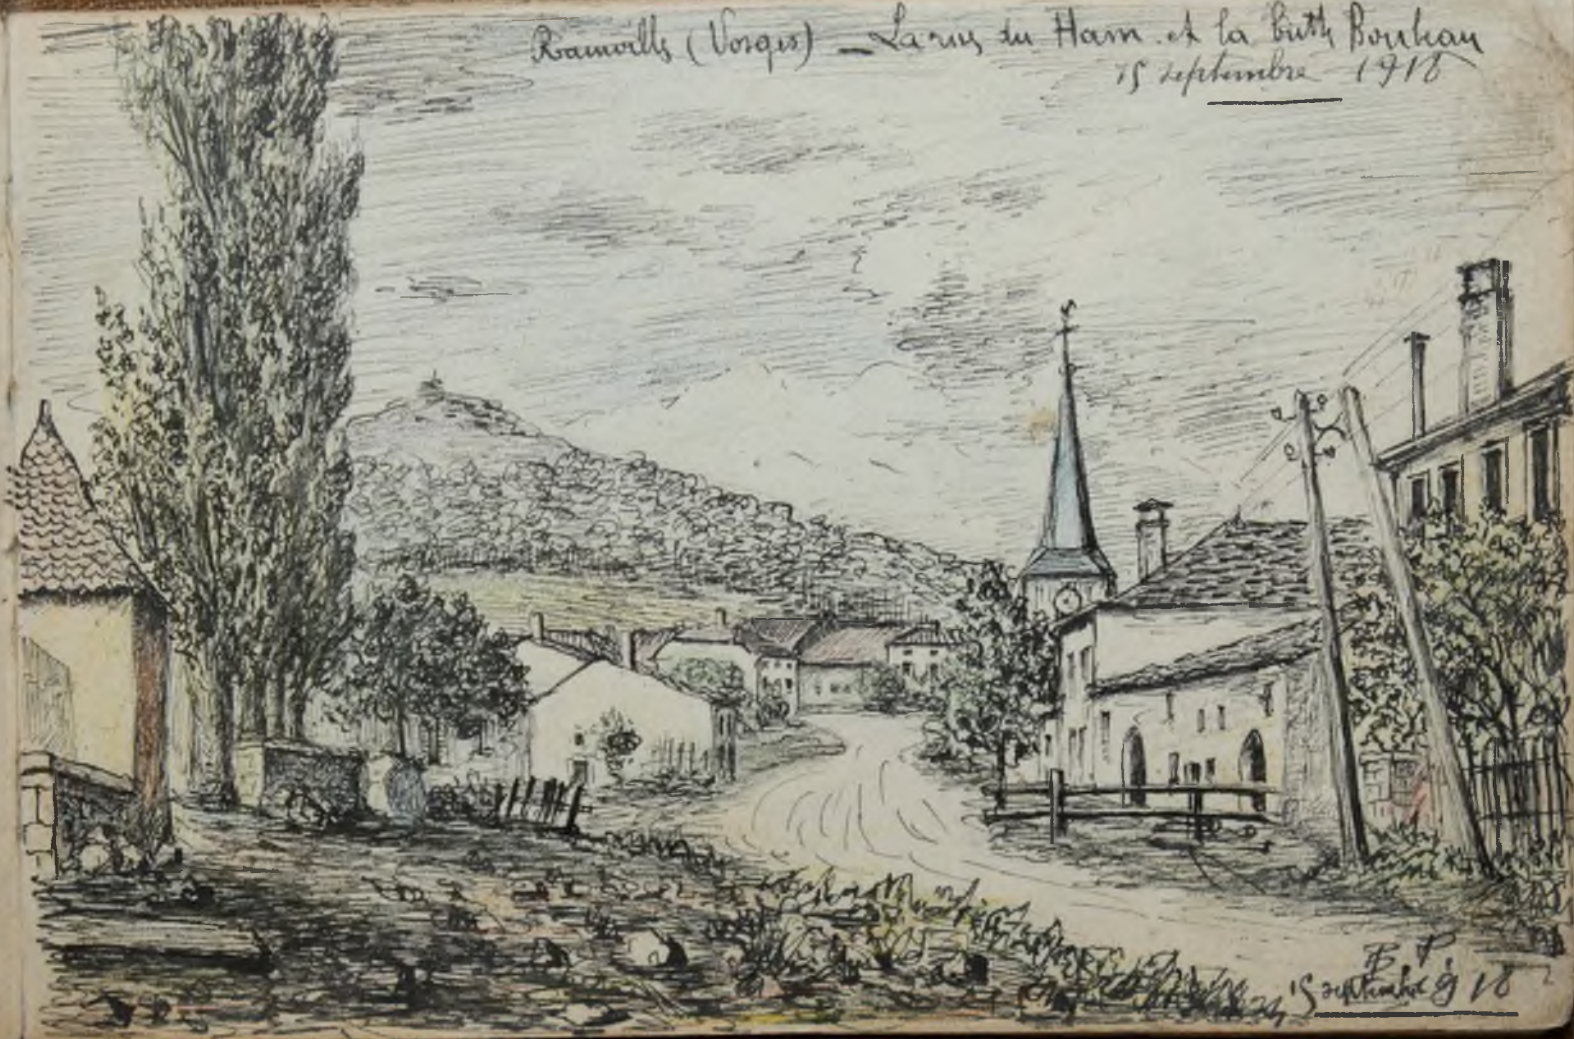 Rainville (Vosges) – La rue du Ham et la butte Bouhan
15 septembre 1918
B P.
15 septembre 1918